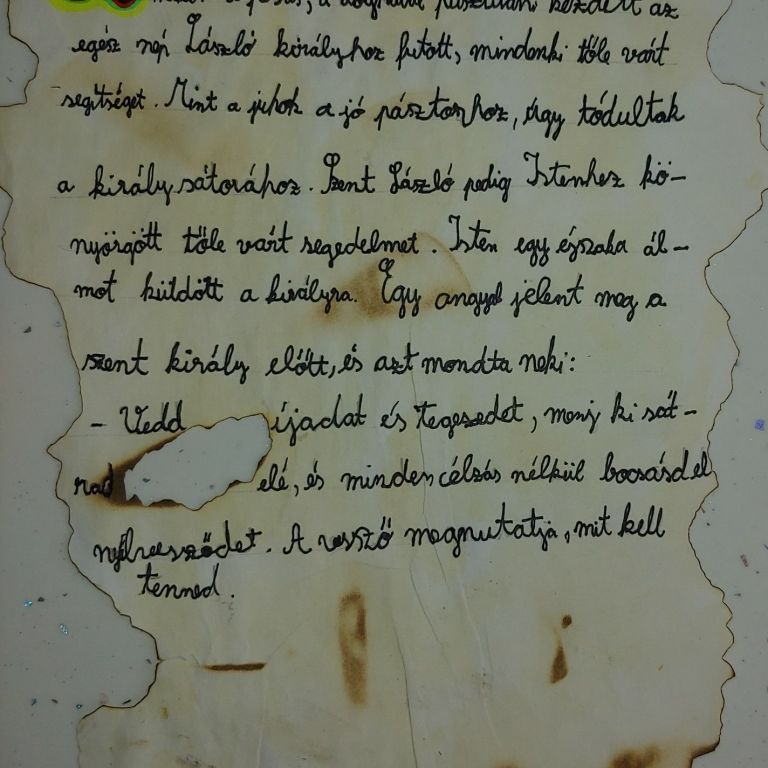 pusztítani kezdett az
egész nép László királyhoz futott, mindenki tőle várt
segítséget. Mint a juhok a jó pásztorhoz, úgy tódultak
a király sátorához. Szent László pedig Istenhez kö-
nyörgött tőle várt segedelmet. Isten egy éjszaka ál-
mot küldött a királyra. Egy angyal jelent meg a
szent király előtt, és azt mondta neki:
- Vedd íjadat és tegezedet, menj ki sát-
rad elé, és minden célzás nélkül bocsásd el
nyílvesződet. A vessző megmutatja, mit kell
tenned.